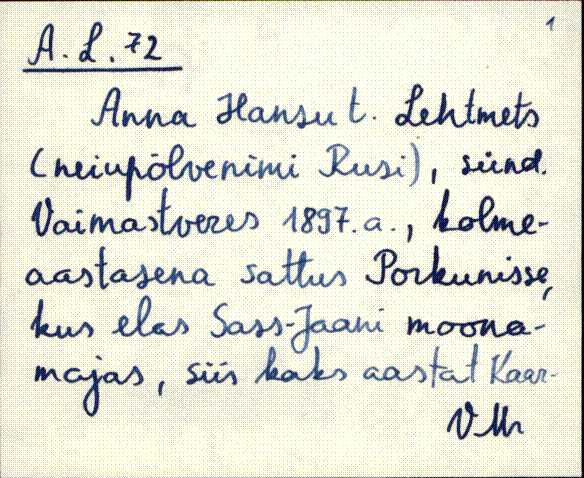 1
A. L. 72
Anna Hansu t. Lehtmets
(neiupõlvenimi Rusi), sünd.
Vaimastveres 1897. a., kolme-
aastasena sattus Porkunisse,
kus elas Sass-Jaani moona-
majas, siis kaks aastat Kaar-
VMr